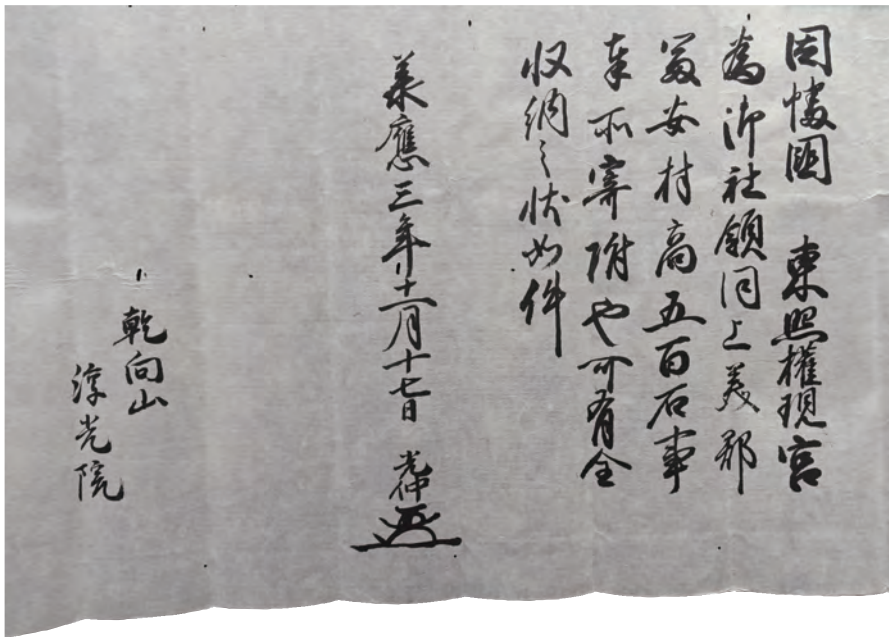 因幡國 東照權現宮
為御社領同上美郡
冨安村高五百石事
奉所寄附也可有全
収納之状如件
羕應三年十二月十七日 光仲
乾向山
淳光院